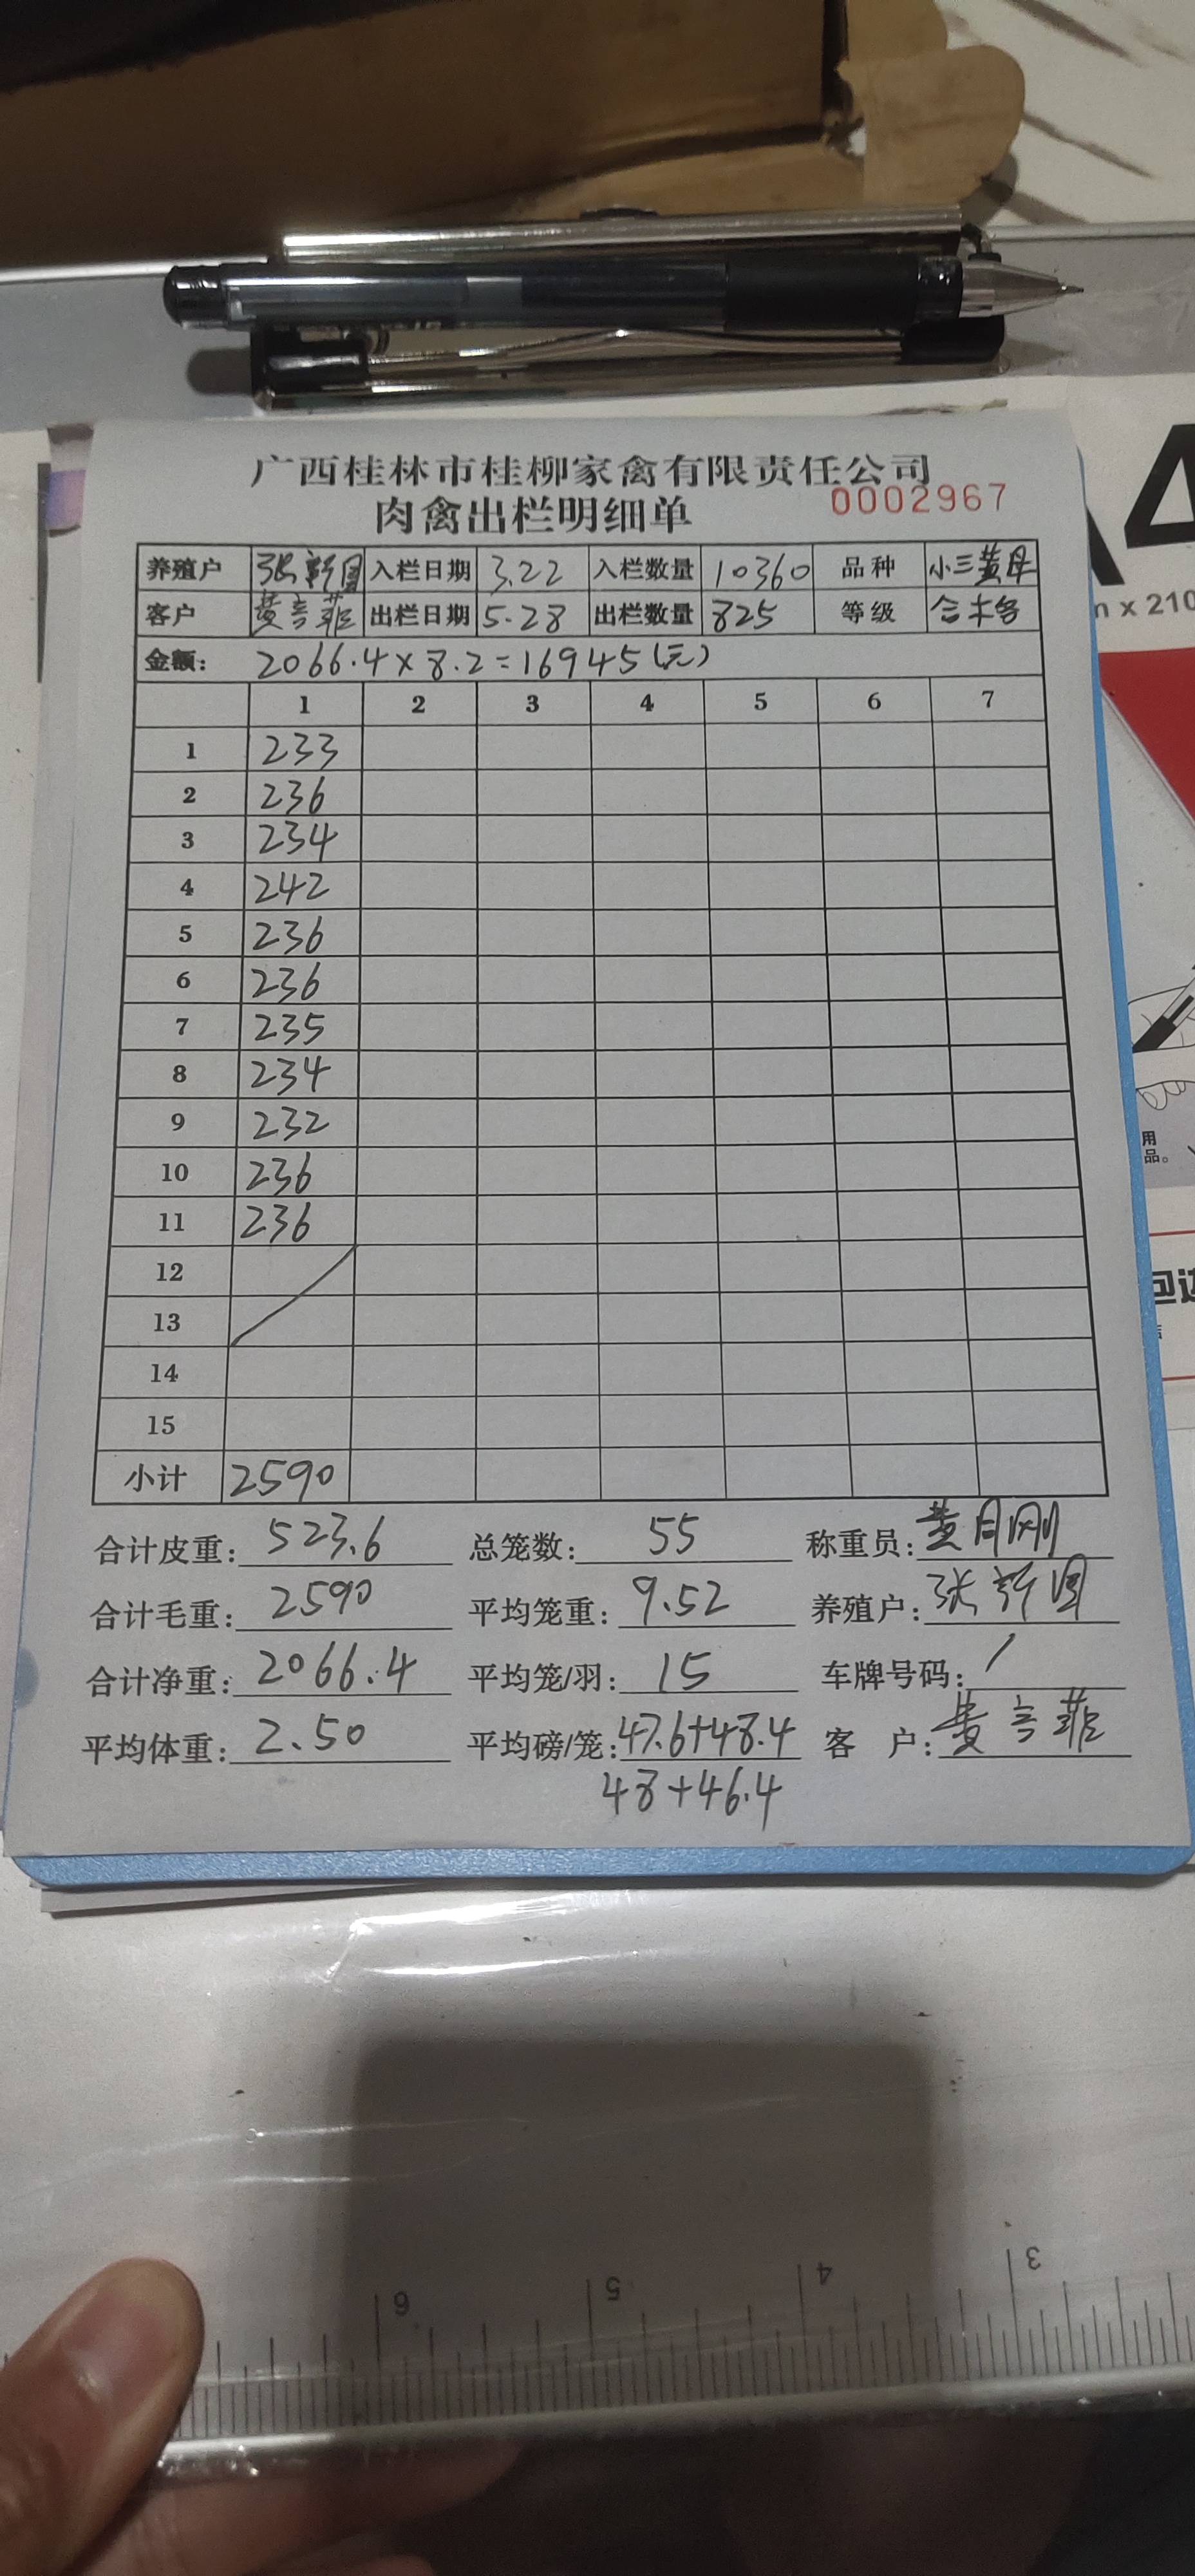 广西桂林市桂柳家禽有限责任公司
肉禽出栏明细单 0002967
养殖户 张新国 入栏日期 3.22 入栏数量 10360 品种 小三黄母
客户 黄言菲 出栏日期 5.28 出栏数量 825 等级 合格
金额: 2066.4×8.2=16945(元)
1 2 3 4 5 6 7
1 233
2 236
3 234
4 242
5 236
6 236
7 235
8 234
9 232
10 236
11 236
12
13
14
15
小计 2590
合计皮重: 523.6 总笼数: 55 称重员: 黄月刚
合计毛重: 2590 平均笼重: 9.52 养殖户: 张新国
合计净重: 2066.4 平均笼/羽: 15 车牌号码: /
平均体重: 2.50 平均磅/笼: 47.6+48.4 客 户: 黄言菲
48+46.4
A4
m x 210
用
品。
包边
6 5 4 3